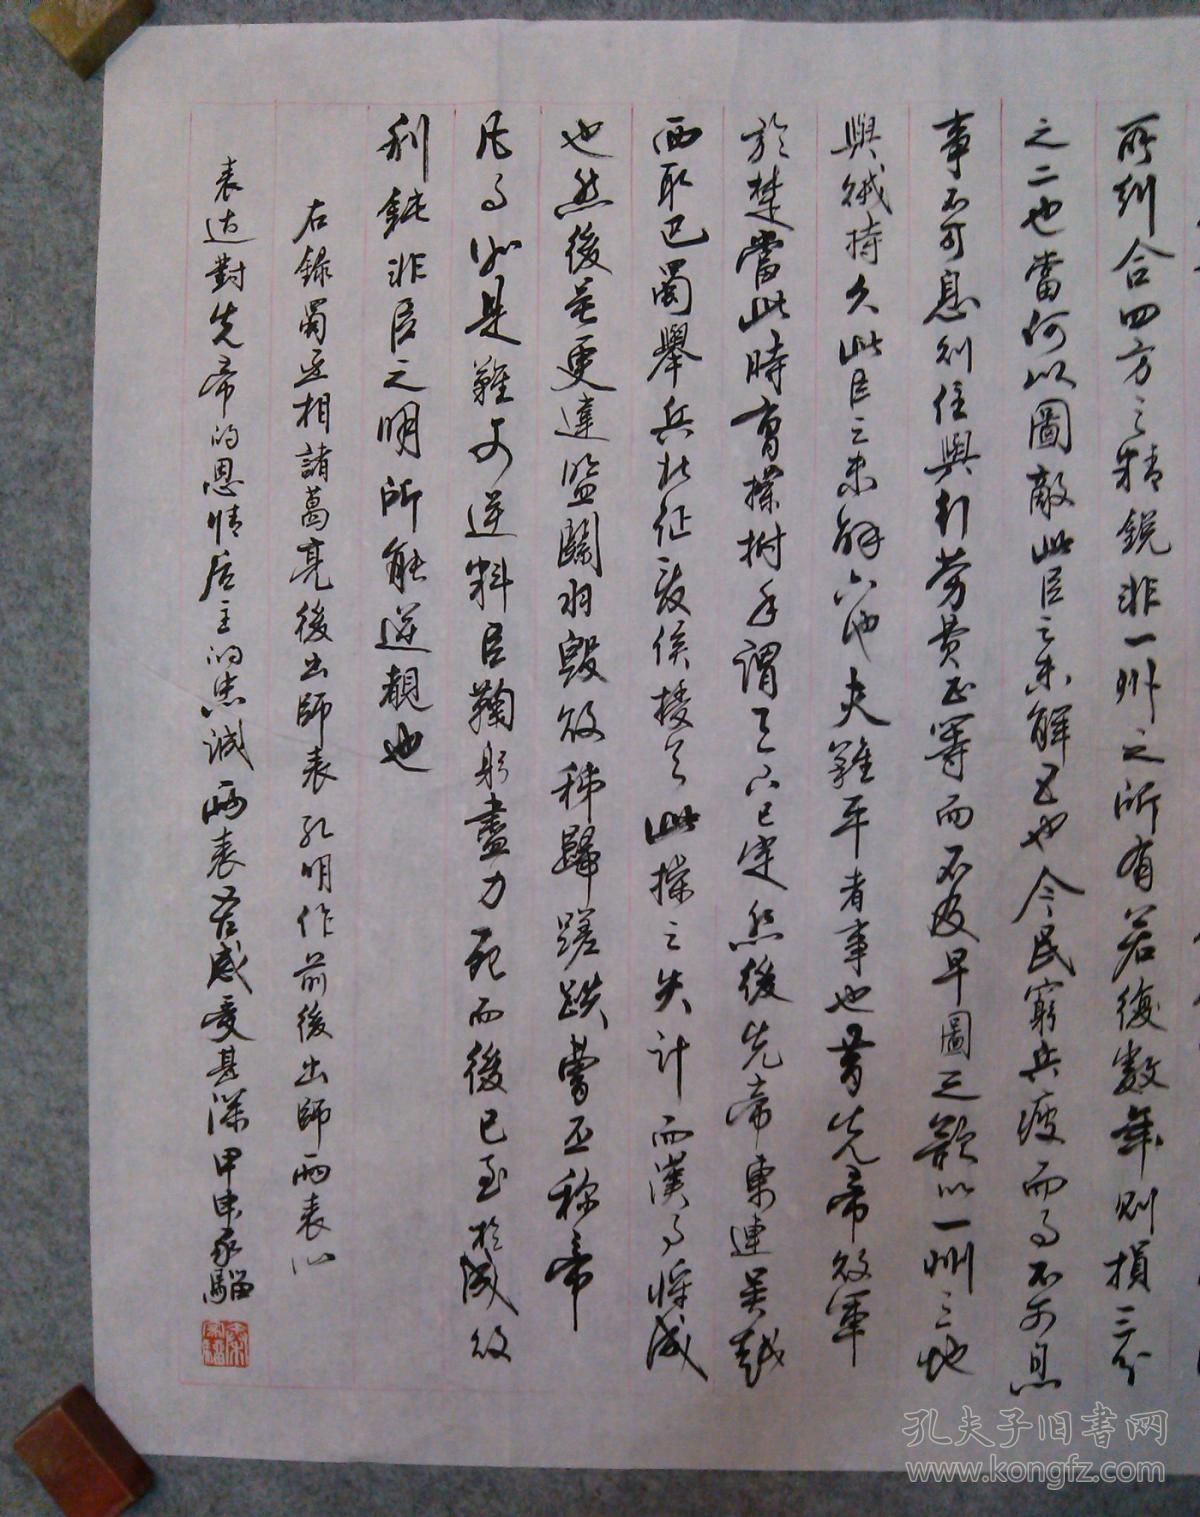 所糾合四方之精銳非一州之所有若復數年則損三分
之二也當何以圖敵此臣之未解五也今民窮兵疲而事不可息
事不可息則住與行勞費正等而不及早圖之欲以一州之地
與賊持久此臣之未解六也夫難平者事也昔先帝敗軍
於楚當此時曹操拊手謂天下已定然後先帝東連吳越
西取巴蜀舉兵北征夏侯授首此操之失計而漢事將成
也然後吳更違盟關羽毀敗秭歸蹉跌曹丕稱帝
凡事如是難可逆料臣鞠躬盡力死而後已至於成敗
利鈍非臣之明所能逆覩也
右錄蜀丞相諸葛亮後出師表孔明作前後出師兩表以
表达對先帝的恩情后主的忠誠兩表吾感受甚深甲申家騮
孔夫子旧书网
www.kongfz.com